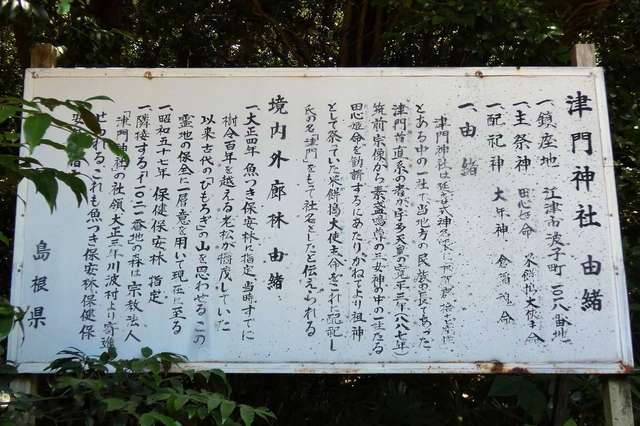 津門神社 由緒
一、鎮座地 江津市波子町イ一〇八番地
一、主祭神 田心姫命 米餅搗大使主命
一、配祀神 大年神 倉稲魂命
一、由緒
津門神社は延喜式神名帳に
とある中の一社で当地方の民蔵の長であった
津門首直系の者が宇多天皇の寛平三年(八八七年)
筑前宗像から素盞嗚尊の三女神の中の一柱たる
田心姫命を勧請するにあたりかねてより祖神
として祭っていた米餅搗大使主命をこれに配祀し
氏の名「津門」をとって社名としたと伝えられる
境内外廊林 由緒
一、大正四年魚つき保安林に指定 当時すでに
樹令百年を越える老松が
以来古代の「ひもろぎ」の山を思わせる この
霊地の保全に一層意を用いて現在に至る
一、昭和五十七年 保健保安林 指定
一、隣接する「一〇二一番地の森は宗教法人
「津門神社」の社領大正三年川波村より寄進
せられる これも魚つき保安林、保健保
島根県